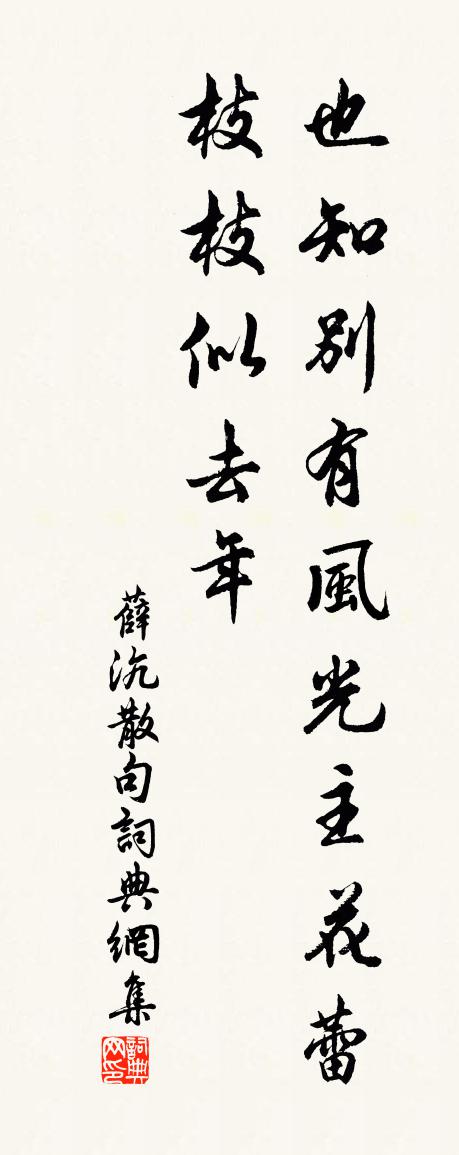 也知別有風光主花蕾
枝枝似去年
薛沆散句詞典網集
詞典网印